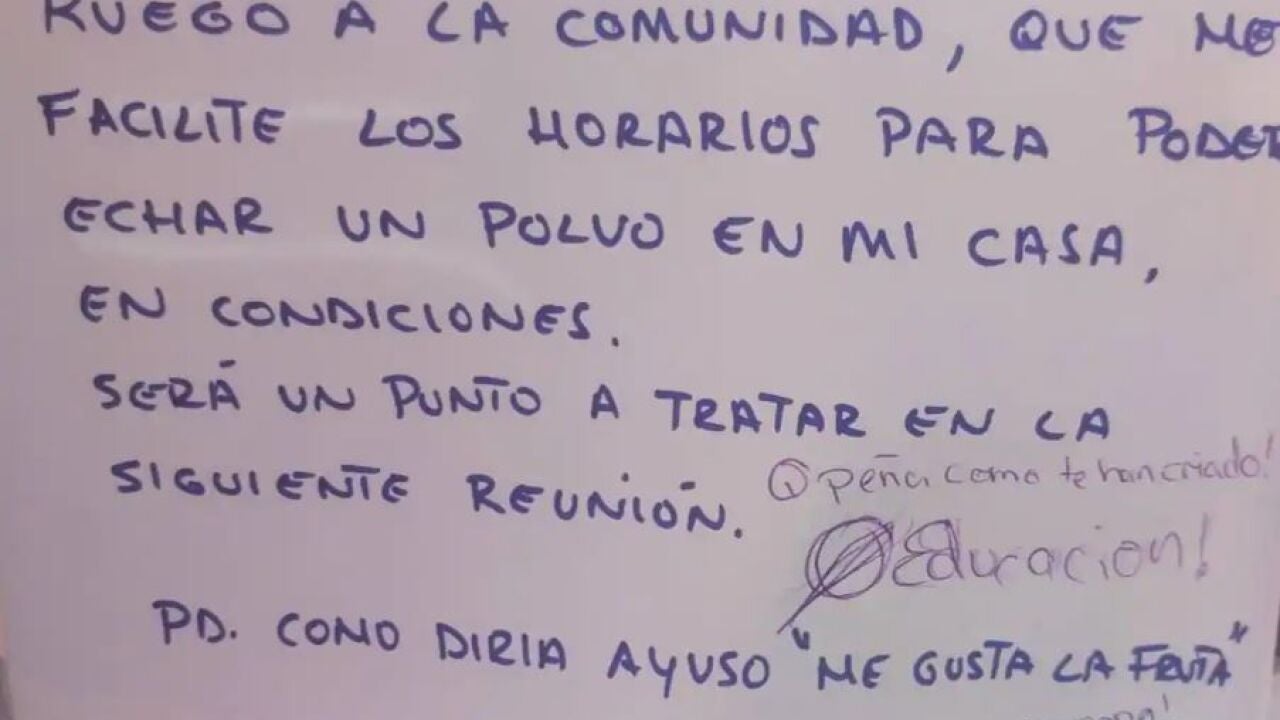 RUEGO A LA COMUNIDAD, QUE ME
FACILITE LOS HORARIOS PARA PODER
ECHAR UN POLVO EN MI CASA,
EN CONDICIONES.
SERÁ UN PUNTO A TRATAR EN LA
SIGUIENTE REUNIÓN.
Q peña, como te han criado!
Educacion!
PD. COMO DIRIA AYUSO "ME GUSTA LA FRUTA"